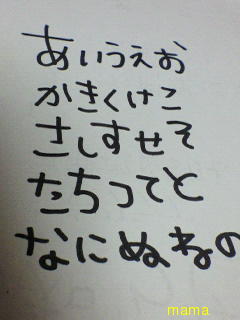 あいうえお
かきくけこ
さしすせそ
たちつてと
なにぬねの
mama